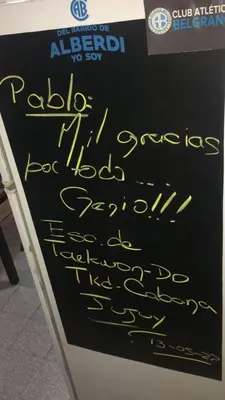 DEL BARRIO DE
ALBERDI
YO SOY
CLUB ATLÉTI
BELGRAN
Pablo:
Mil gracias
por todo...
Genio!!!
Esc. de
Taekwon-Do
Tkd-Cabana
Jujuy
13-05-22